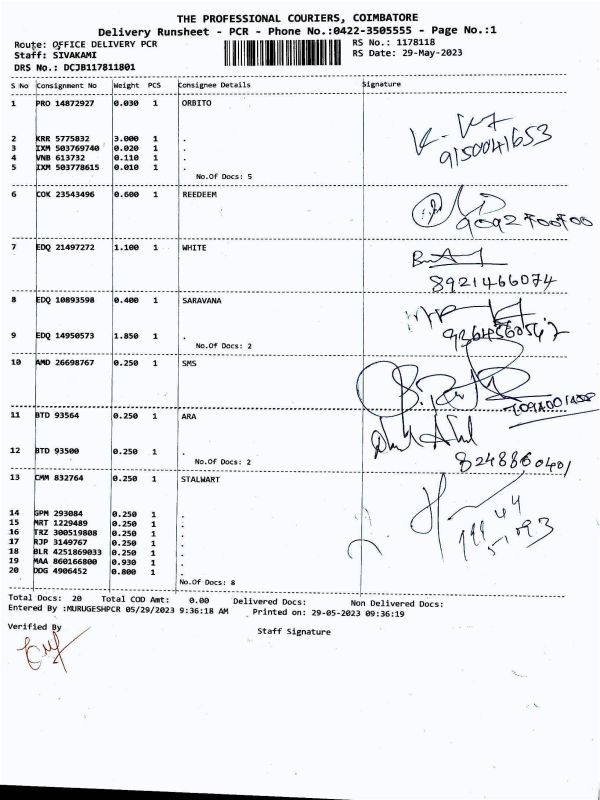 THE PROFESSIONAL COURIERS, COIMBATORE
Delivery Runsheet - PCR - Phone No.:0422-3505555 - Page No.:1
Route: OFFICE DELIVERY PCR
RS No.: 1178118
Staff: SIVAKAMI
RS Date: 29-May-2023
DRS No.: DCJB117811801
S No Consignment No Weight PCS Consignee Details Signature
1 PRO 14872927 0.030 1 ORBITO
2 KRR 5775832 3.000 1 .
3 IXM 503769740 0.020 1 .
4 VNB 613732 0.110 1 .
5 IXM 503778615 0.010 1 .
9150041653
No.Of Docs: 5
6 COK 23543496 0.600 1 REEDEEM
7 EDQ 21497272 1.100 1 WHITE
8921466074
8 EDQ 10893598 0.400 1 SARAVANA
9 EDQ 14950573 1.850 1 .
No.Of Docs: 2
10 AMD 26698767 0.250 1 SMS
11 BTD 93564 0.250 1 ARA
12 BTD 93500 0.250 1 .
No.Of Docs: 2
8248860401
13 CMM 832764 0.250 1 STALWART
14 GPM 293084 0.250 1 .
15 MRT 1229489 0.250 1 .
16 TRZ 300519808 0.250 1 .
17 RJP 3149767 0.250 1 .
18 BLR 4251869033 0.250 1 .
19 MAA 860166800 0.930 1 .
20 DDG 4906452 0.800 1 .
No.Of Docs: 8
Total Docs: 20 Total COD Amt: 0.00 Delivered Docs: Non Delivered Docs:
Entered By :MURUGESHPCR 05/29/2023 9:36:18 AM Printed on: 29-05-2023 09:36:19
Verified By
Staff Signature